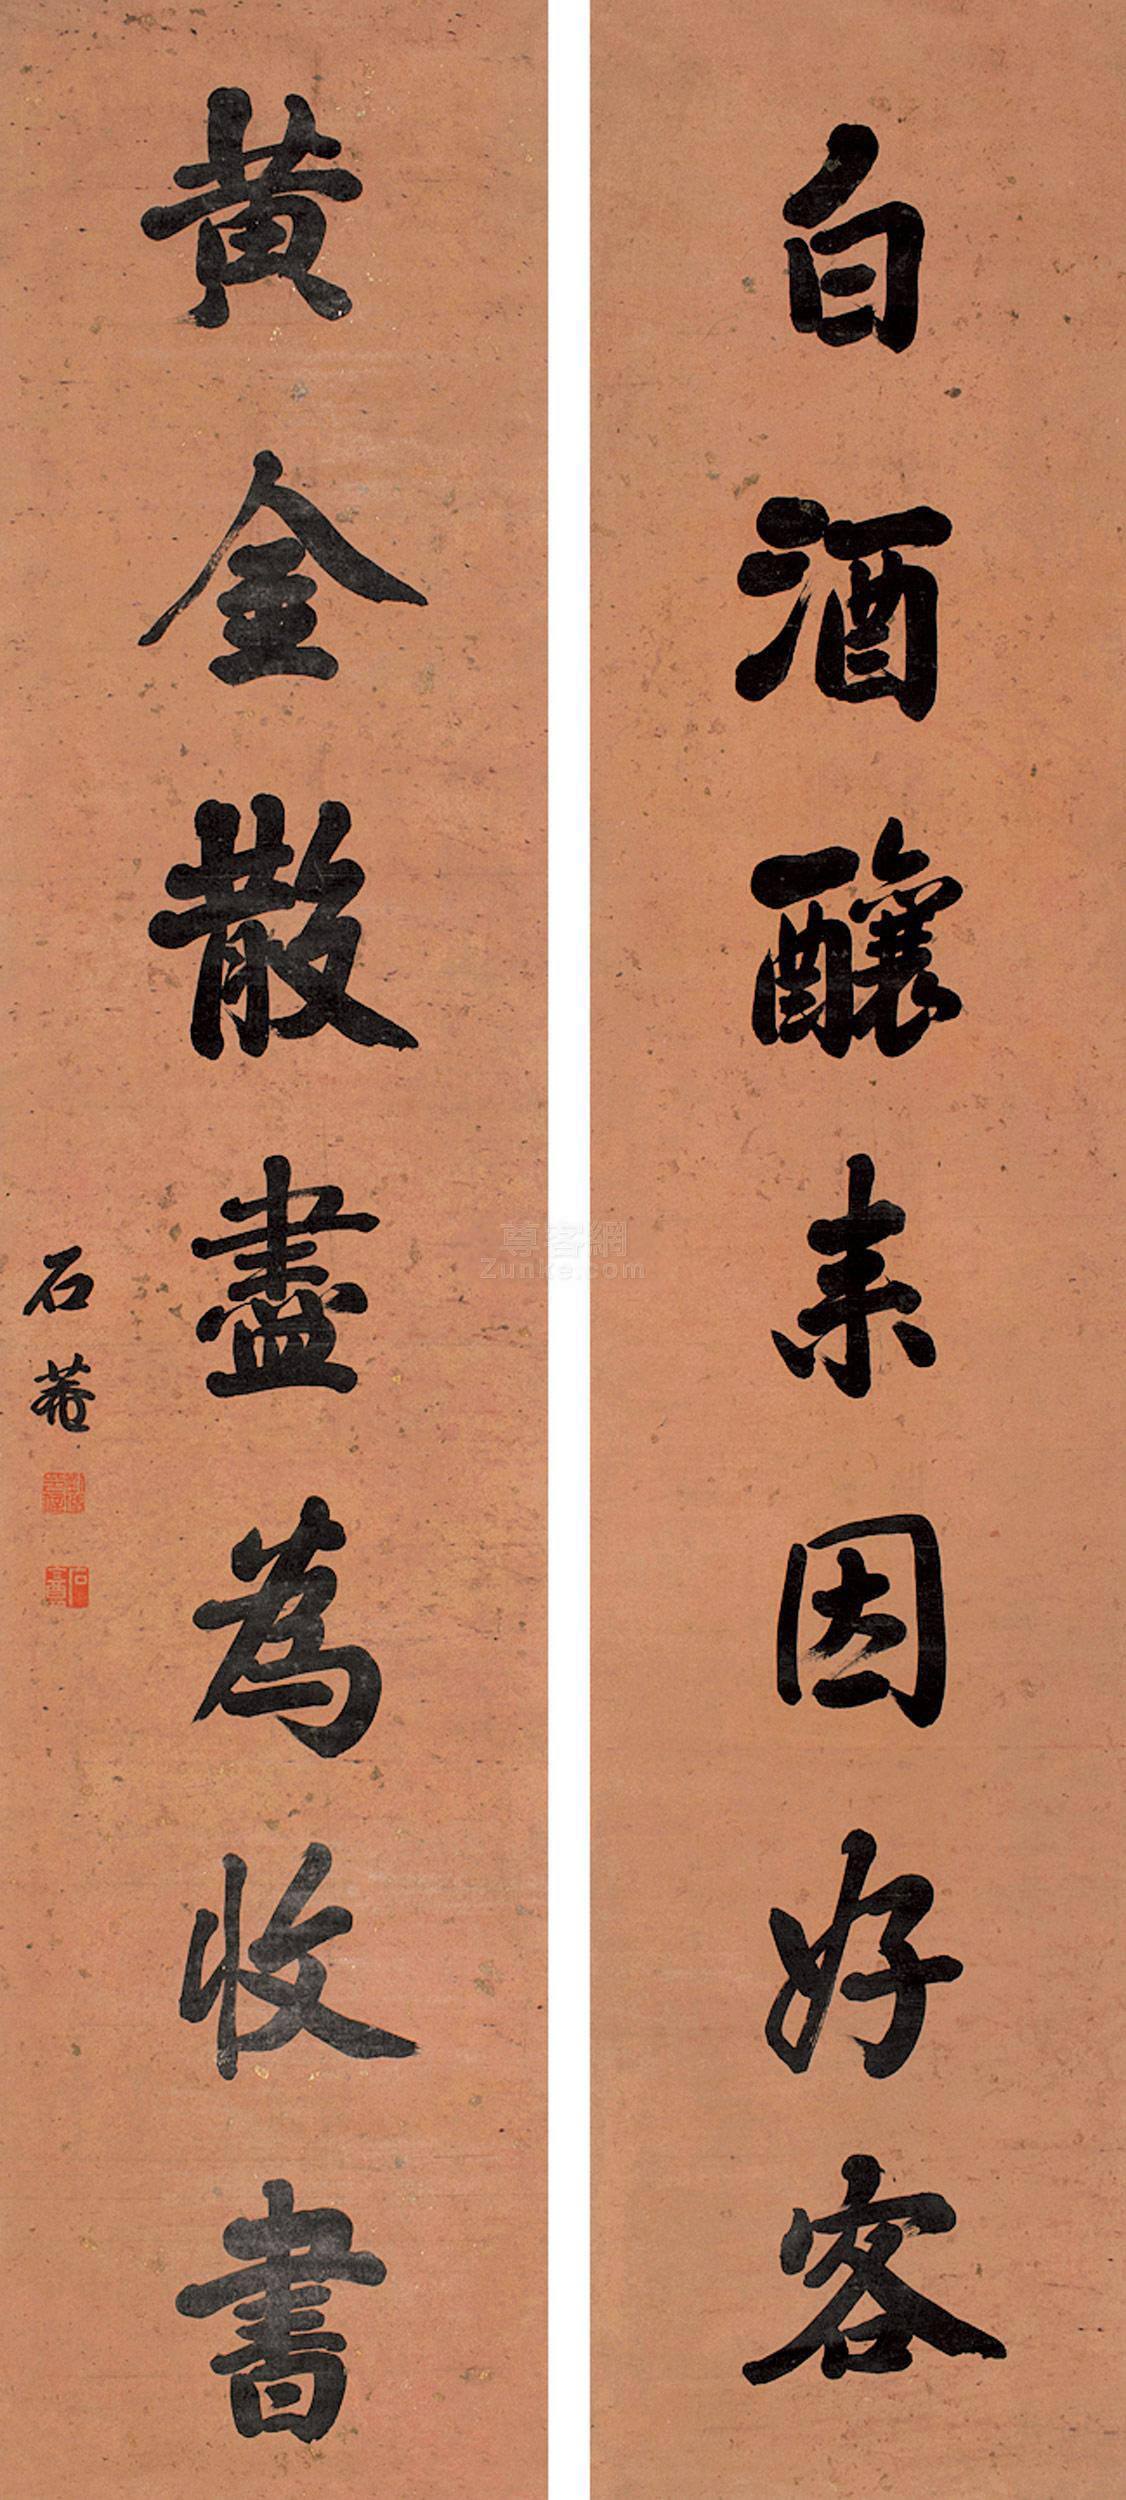 白酒釀来因好客
黄金散盡為收書
石菴
尊客網
Zunke.com